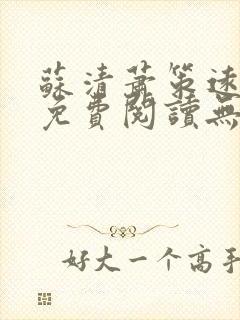 蘇清蕭策速
免費閱讀無
好大一个高手